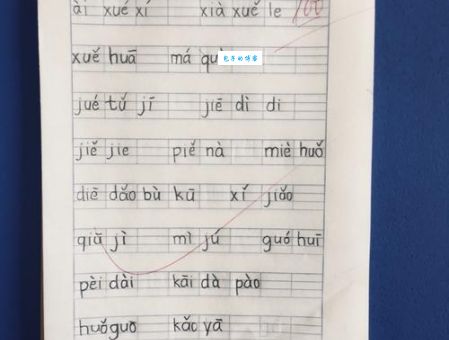 ài xué xí xià xuě le 100
xuě huā má què 包子的博客
jué tǔ jī jiē dì di
jiě jie piě nà miè huǒ
diē dǎo bù kū xǐ jiǎo
qiā jì mì jú guó huī
pèi dài kāi dà pào
huǒ guo kǎo yā